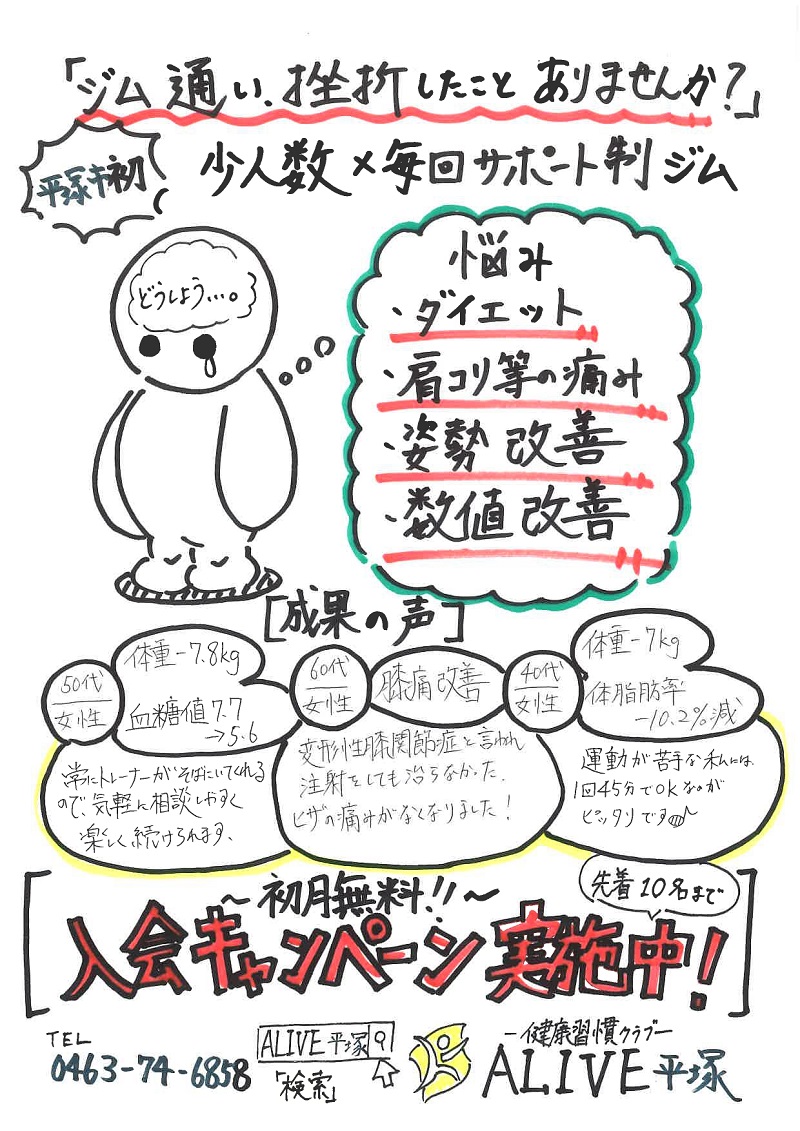 「ジム通い、挫折したことありませんか?」
平塚市初
少人数×毎回サポート制ジム
どうしよう…。
悩み
・ダイエット
・肩コリ等の痛み
・姿勢改善
・数値改善
[成果の声]
50代
女性
体重-7.8kg
血糖値7.7
→5.6
常にトレーナーがそばにいてくれる
ので、気軽に相談しやすく
楽しく続けられます、
60代
女性
膝痛改善
変形性膝関節症と言われ
注射をしても治らなかった
ヒザの痛みがなくなりました!
40代
女性
体重-7kg
体脂肪率
-10.2%減
運動が苦手な私には、
1回45分でOKなのが
ピッタリです
~初月無料!!~
先着10名まで
入会キャンペーン実施中!
TEL
0463-74-6858
ALIVE平塚
「検索」
-健康習慣クラブ-
ALIVE平塚